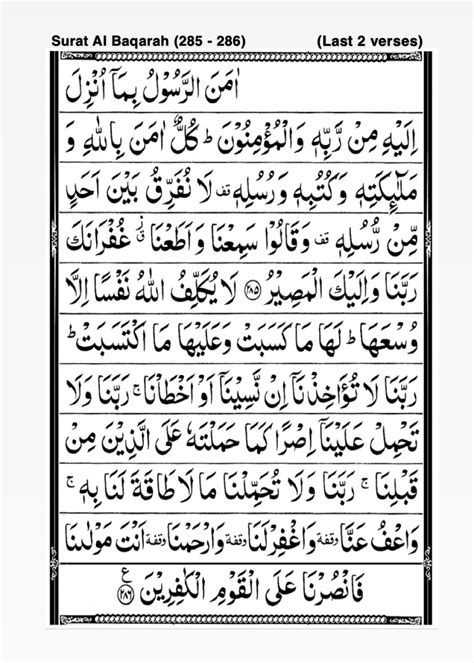 Surat Al Baqarah (285 - 286) (Last 2 verses)
اٰمَنَ الرَّسُوْلُ بِمَاۤ اُنْزِلَ
اِلَيْهِ مِنْ رَّبِّهٖ وَ الْمُؤْمِنُوْنَ ؕ كُلٌّ اٰمَنَ بِاللّٰهِ وَ
مَلٰٓئِكَتِهٖ وَ كُتُبِهٖ وَ رُسُلِهٖ قف لَا نُفَرِّقُ بَيْنَ اَحَدٍ
مِّنْ رُّسُلِهٖ قف وَ قَالُوْا سَمِعْنَا وَ اَطَعْنَا ق ز غُفْرَانَكَ
رَبَّنَا وَ اِلَيْكَ الْمَصِيْرُ ﴿۲۸۵﴾ لَا يُكَلِّفُ اللّٰهُ نَفْسًا اِلَّا
وُسْعَهَا ؕ لَهَا مَا كَسَبَتْ وَ عَلَيْهَا مَا اكْتَسَبَتْ ؕ
رَبَّنَا لَا تُؤَاخِذْنَاۤ اِنْ نَّسِيْنَاۤ اَوْ اَخْطَاْنَا ۚ رَبَّنَا وَ لَا
تَحْمِلْ عَلَيْنَاۤ اِصْرًا كَمَا حَمَلْتَهٗ عَلَى الَّذِيْنَ مِنْ
قَبْلِنَا ۚ رَبَّنَا وَ لَا تُحَمِّلْنَا مَا لَا طَاقَةَ لَنَا بِهٖ ۚ
وَ اعْفُ عَنَّا وقفة وَ اغْفِرْ لَنَا وقفة وَ ارْحَمْنَا وقفة اَنْتَ مَوْلٰىنَا
فَانْصُرْنَا عَلَى الْقَوْمِ الْكٰفِرِيْنَ ع ﴿۲۸۶﴾